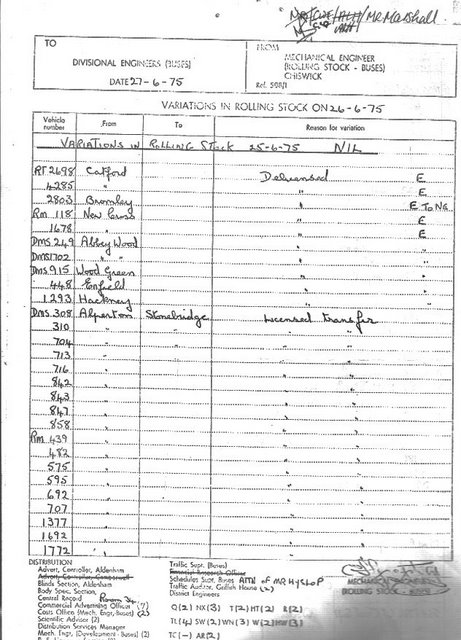 Mr Marshall
TO
DIVISIONAL ENGINEERS (BUSES)
DATE 27-6-75
FROM
MECHANICAL ENGINEER
(ROLLING STOCK - BUSES)
CHISWICK
Ref. 598/1
VARIATIONS IN ROLLING STOCK ON 26-6-75
Vehicle number From To Reason for variation
VARIATIONS IN ROLLING STOCK 25-6-75 NIL
RT 2698 Catford Delicensed E
4285 " " E
2803 Bromley " E TO NG
RM 118 New Cross " E
1678 " " E
DMS 249 Abbey Wood " "
DMS 1702 " " " "
DMS 915 Wood Green " "
448 Enfield " "
1293 Hackney " "
DMS 308 Alperton Stonebridge Licensed transfer
310 " " "
704 " " "
713 " " "
716 " " "
842 " " "
843 " " "
847 " " "
858 " " "
RM 439 " " "
482 " " "
575 " " "
595 " " "
692 " " "
707 " " "
1377 " " "
1692 " " "
1772 " " "
DISTRIBUTION
Advert. Controller, Aldenham
Advert. Controller, Camberwell
Blinds Section, Aldenham
Body Spec. Section,
Central Record Room
Commercial Advertising Officer (7)
Costs Office (Mech. Engr. Buses) (2)
Scientific Advisor (2)
Distribution Services Manager
Mech. Engr. (Development - Buses) (2)
Traffic Supt. (Buses)
Financial Research Officer
Schedules Supt. Buses ATTN of MR HYSLOP
Traffic Auditor, Griffith House (2)
District Engineers
Q(2) NX(3) T(2) HT(2) R(2)
TL(4) SW(2) WN(3) W(2) HW(3)
TC(-) AR(2)
MECHANICAL ENGINEER
(ROLLING STOCK - BUSES)